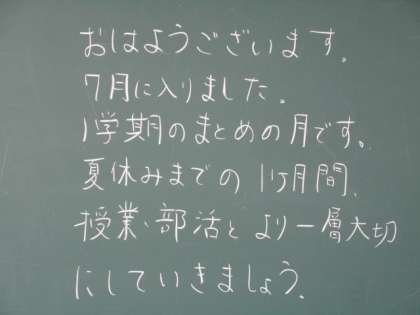 おはようございます。
7月に入りました。
1学期のまとめの月です。
夏休みまでの1ヶ月間、
授業、部活と より一層大切
にしていきましょう。